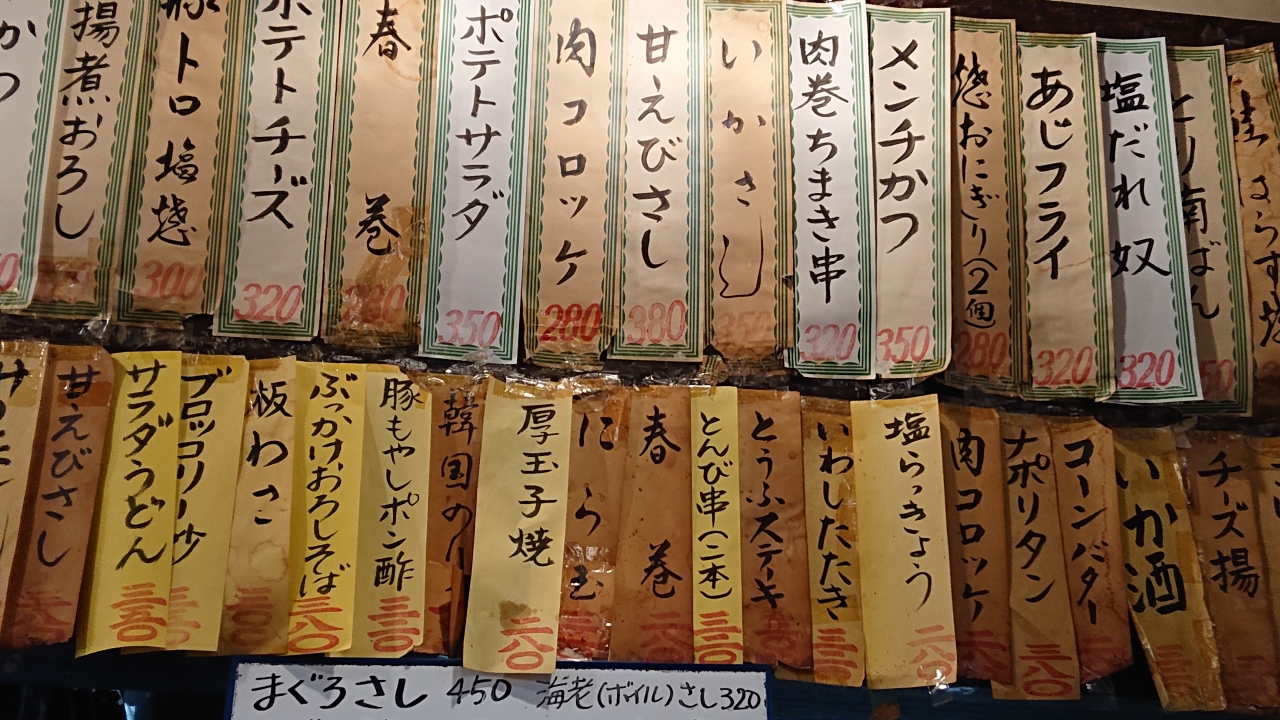 揚煮おろし
トロ塩焼
300
ポテトチーズ
320
春巻
ポテトサラダ
350
肉コロッケ
280
甘えびさし
380
いかさし
350
肉巻ちまき串
320
メンチかつ
350
焼おにぎり(2個)
280
あじフライ
320
塩だれ奴
320
とり南ばん
50
はらす焼
甘えびさし
サラダうどん
三五〇
ブロッコリー炒
板わさ
ぶっかけおろしそば
三八〇
豚もやしポン酢
三三〇
韓国のり
厚玉子焼
二八〇
にら玉
春巻
とんび串(二本)
三三〇
とうふステーキ
いわしたたき
塩らっきょう
二八〇
肉コロッケ
ナポリタン
三八〇
コーンバター
いか酒
チーズ揚
まぐろさし 450 海老(ボイル)さし320